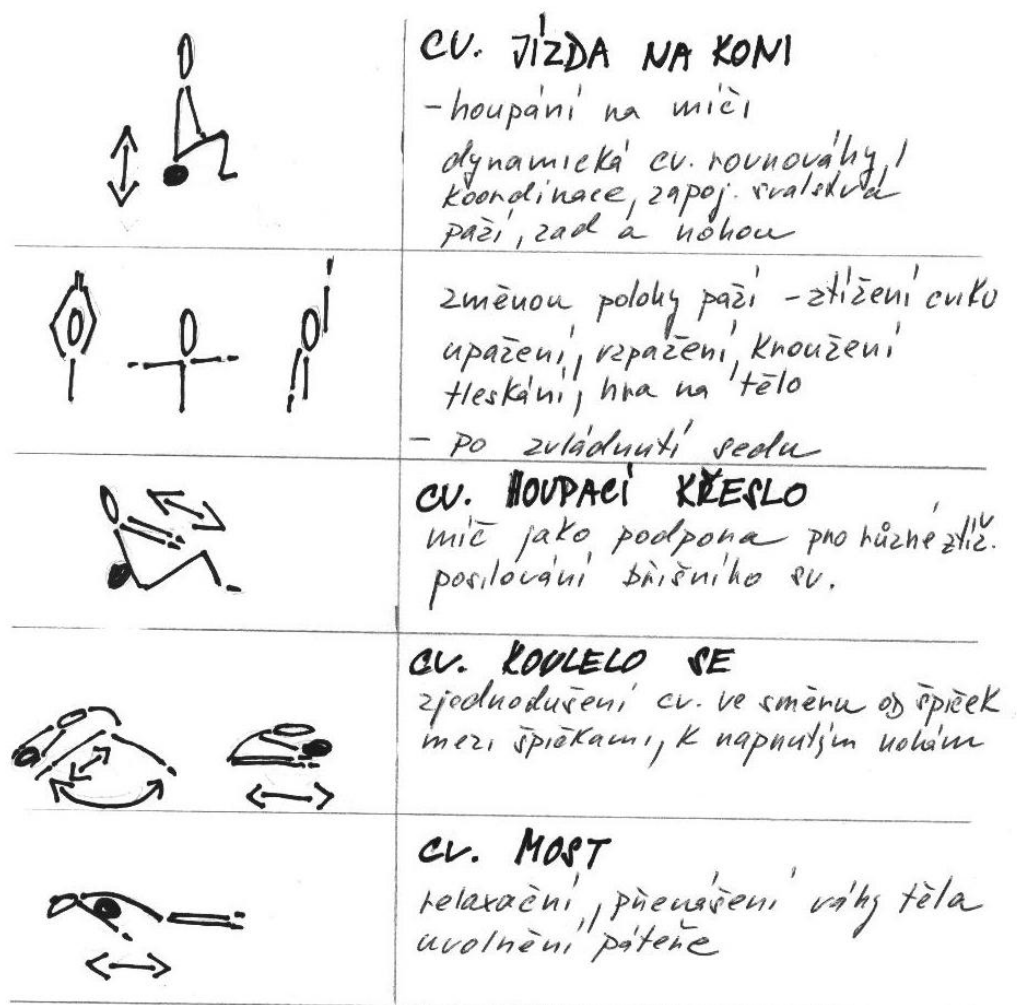 CV. JÍZDA NA KONI
- houpání na míči
dynamická cv. rovnováhy,
koordinace, zapoj. svalstva
paží, zad a nohou
změnou polohy paží - ztížení cviku
upažení, vzpažení, kroužení
tleskání, hra na tělo
- po zvládnutí sedu
CV. HOUPACÍ KŘESLO
míč jako podpora pro různé ztíž.
posilování břišního sv.
CV. KOULELO SE
zjednodušení cv. ve směru od špiček
mezi špičkami, k napnutým nohám
CV. MOST
relaxační, přenášení váhy těla
uvolnění páteře